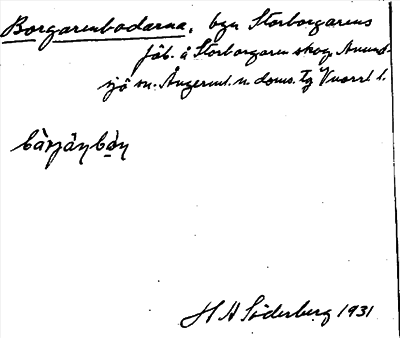 Borgarenbodarna, byn Storborgarens
fäb. å Storborgaren skog, Anund-
sjö sn. Ångerml. n. doms. Tg
bàrjànbo̱n
H A Söderberg 1931